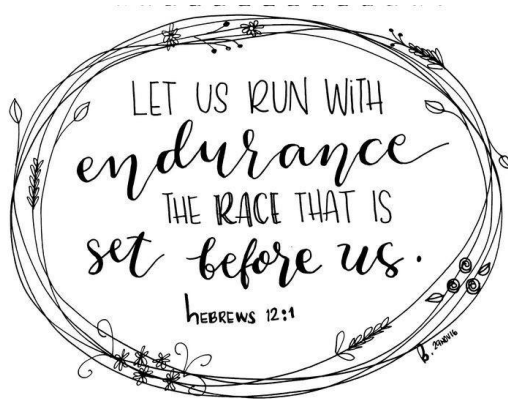 LET US RUN WITH
endurance
THE RACE THAT IS
set before us.
HEBREWS 12:1
B. 29NOV16